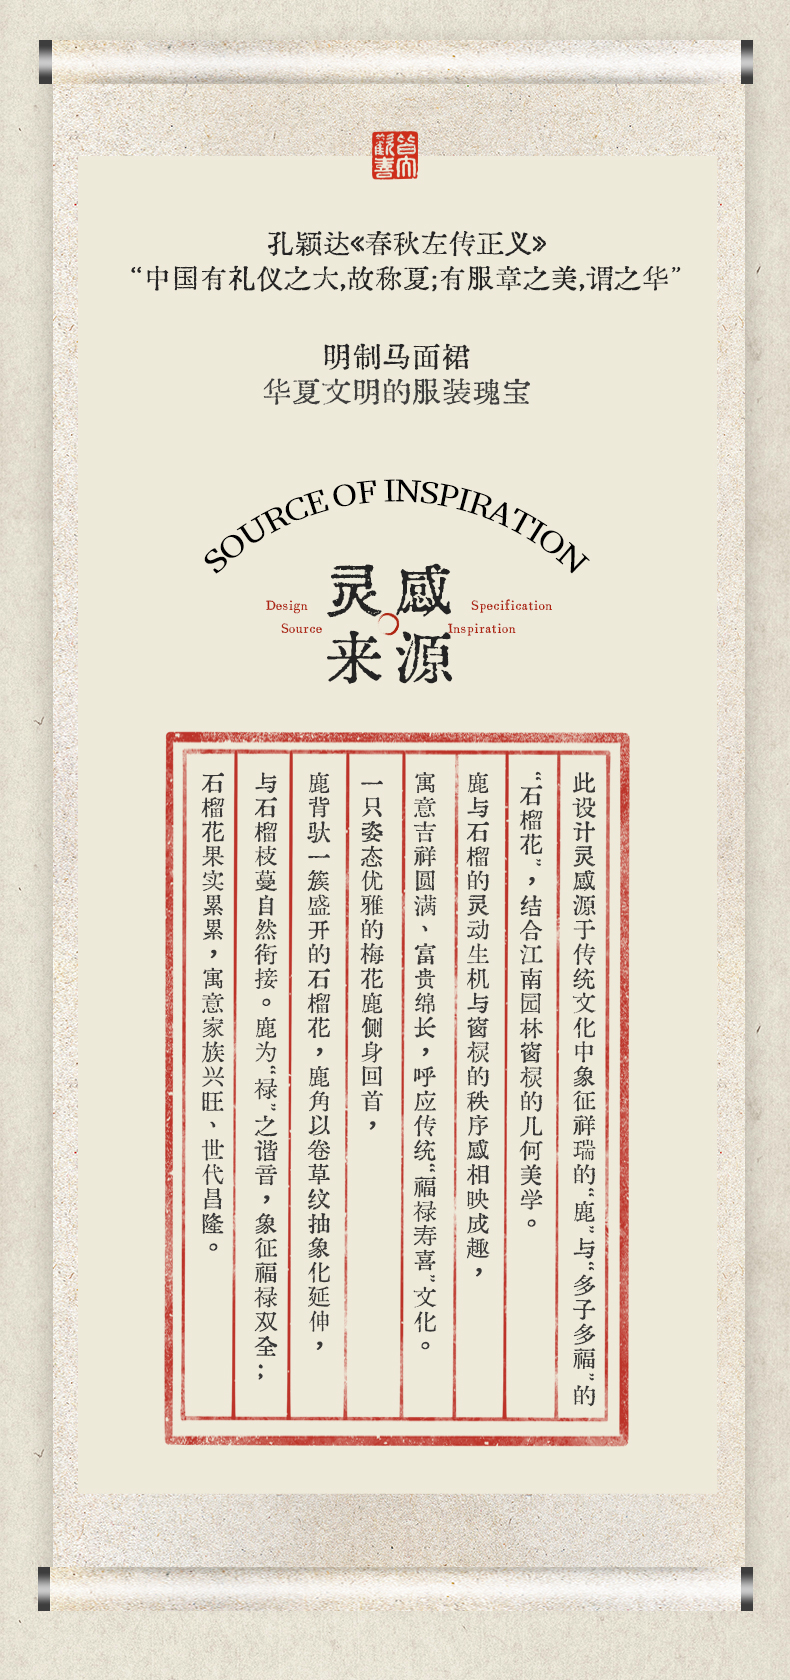 孔颖达《春秋左传正义》
“中国有礼仪之大,故称夏;有服章之美,谓之华”
明制马面裙
华夏文明的服装瑰宝
SOURCE OF INSPIRATION
灵感
来源
Design
Source
Specification
Inspiration
此设计灵感源于传统文化中象征祥瑞的“鹿”与“多子多福”的
“石榴花”,结合江南园林窗棂的几何美学。
鹿与石榴的灵动生机与窗棂的秩序感相映成趣,
寓意吉祥圆满、富贵绵长,呼应传统“福禄寿喜”文化。
一只姿态优雅的梅花鹿侧身回首,
鹿背驮一簇盛开的石榴花,鹿角以卷草纹抽象化延伸,
与石榴枝蔓自然衔接。鹿为“禄”之谐音,象征福禄双全;
石榴花果实累累,寓意家族兴旺、世代昌隆。